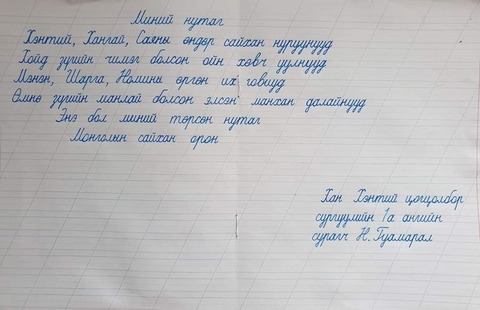 Миний нутаг
Хэнтий, Хангай, Саяны өндөр сайхан нуруунууд
Хойд зүгийн чимэг болсон ойн хөвч уулнууд
Мэнэн, Шарга, Номины өргөн их говиуд
Өмнө зүгийн манлай болсон элсэн манхан далайнууд
Энэ бол миний төрсөн нутаг
Монголын сайхан орон
Хан Хэнтий цогцолбор
сургуулийн 1а ангийн
сурагч Н. Гуамарал